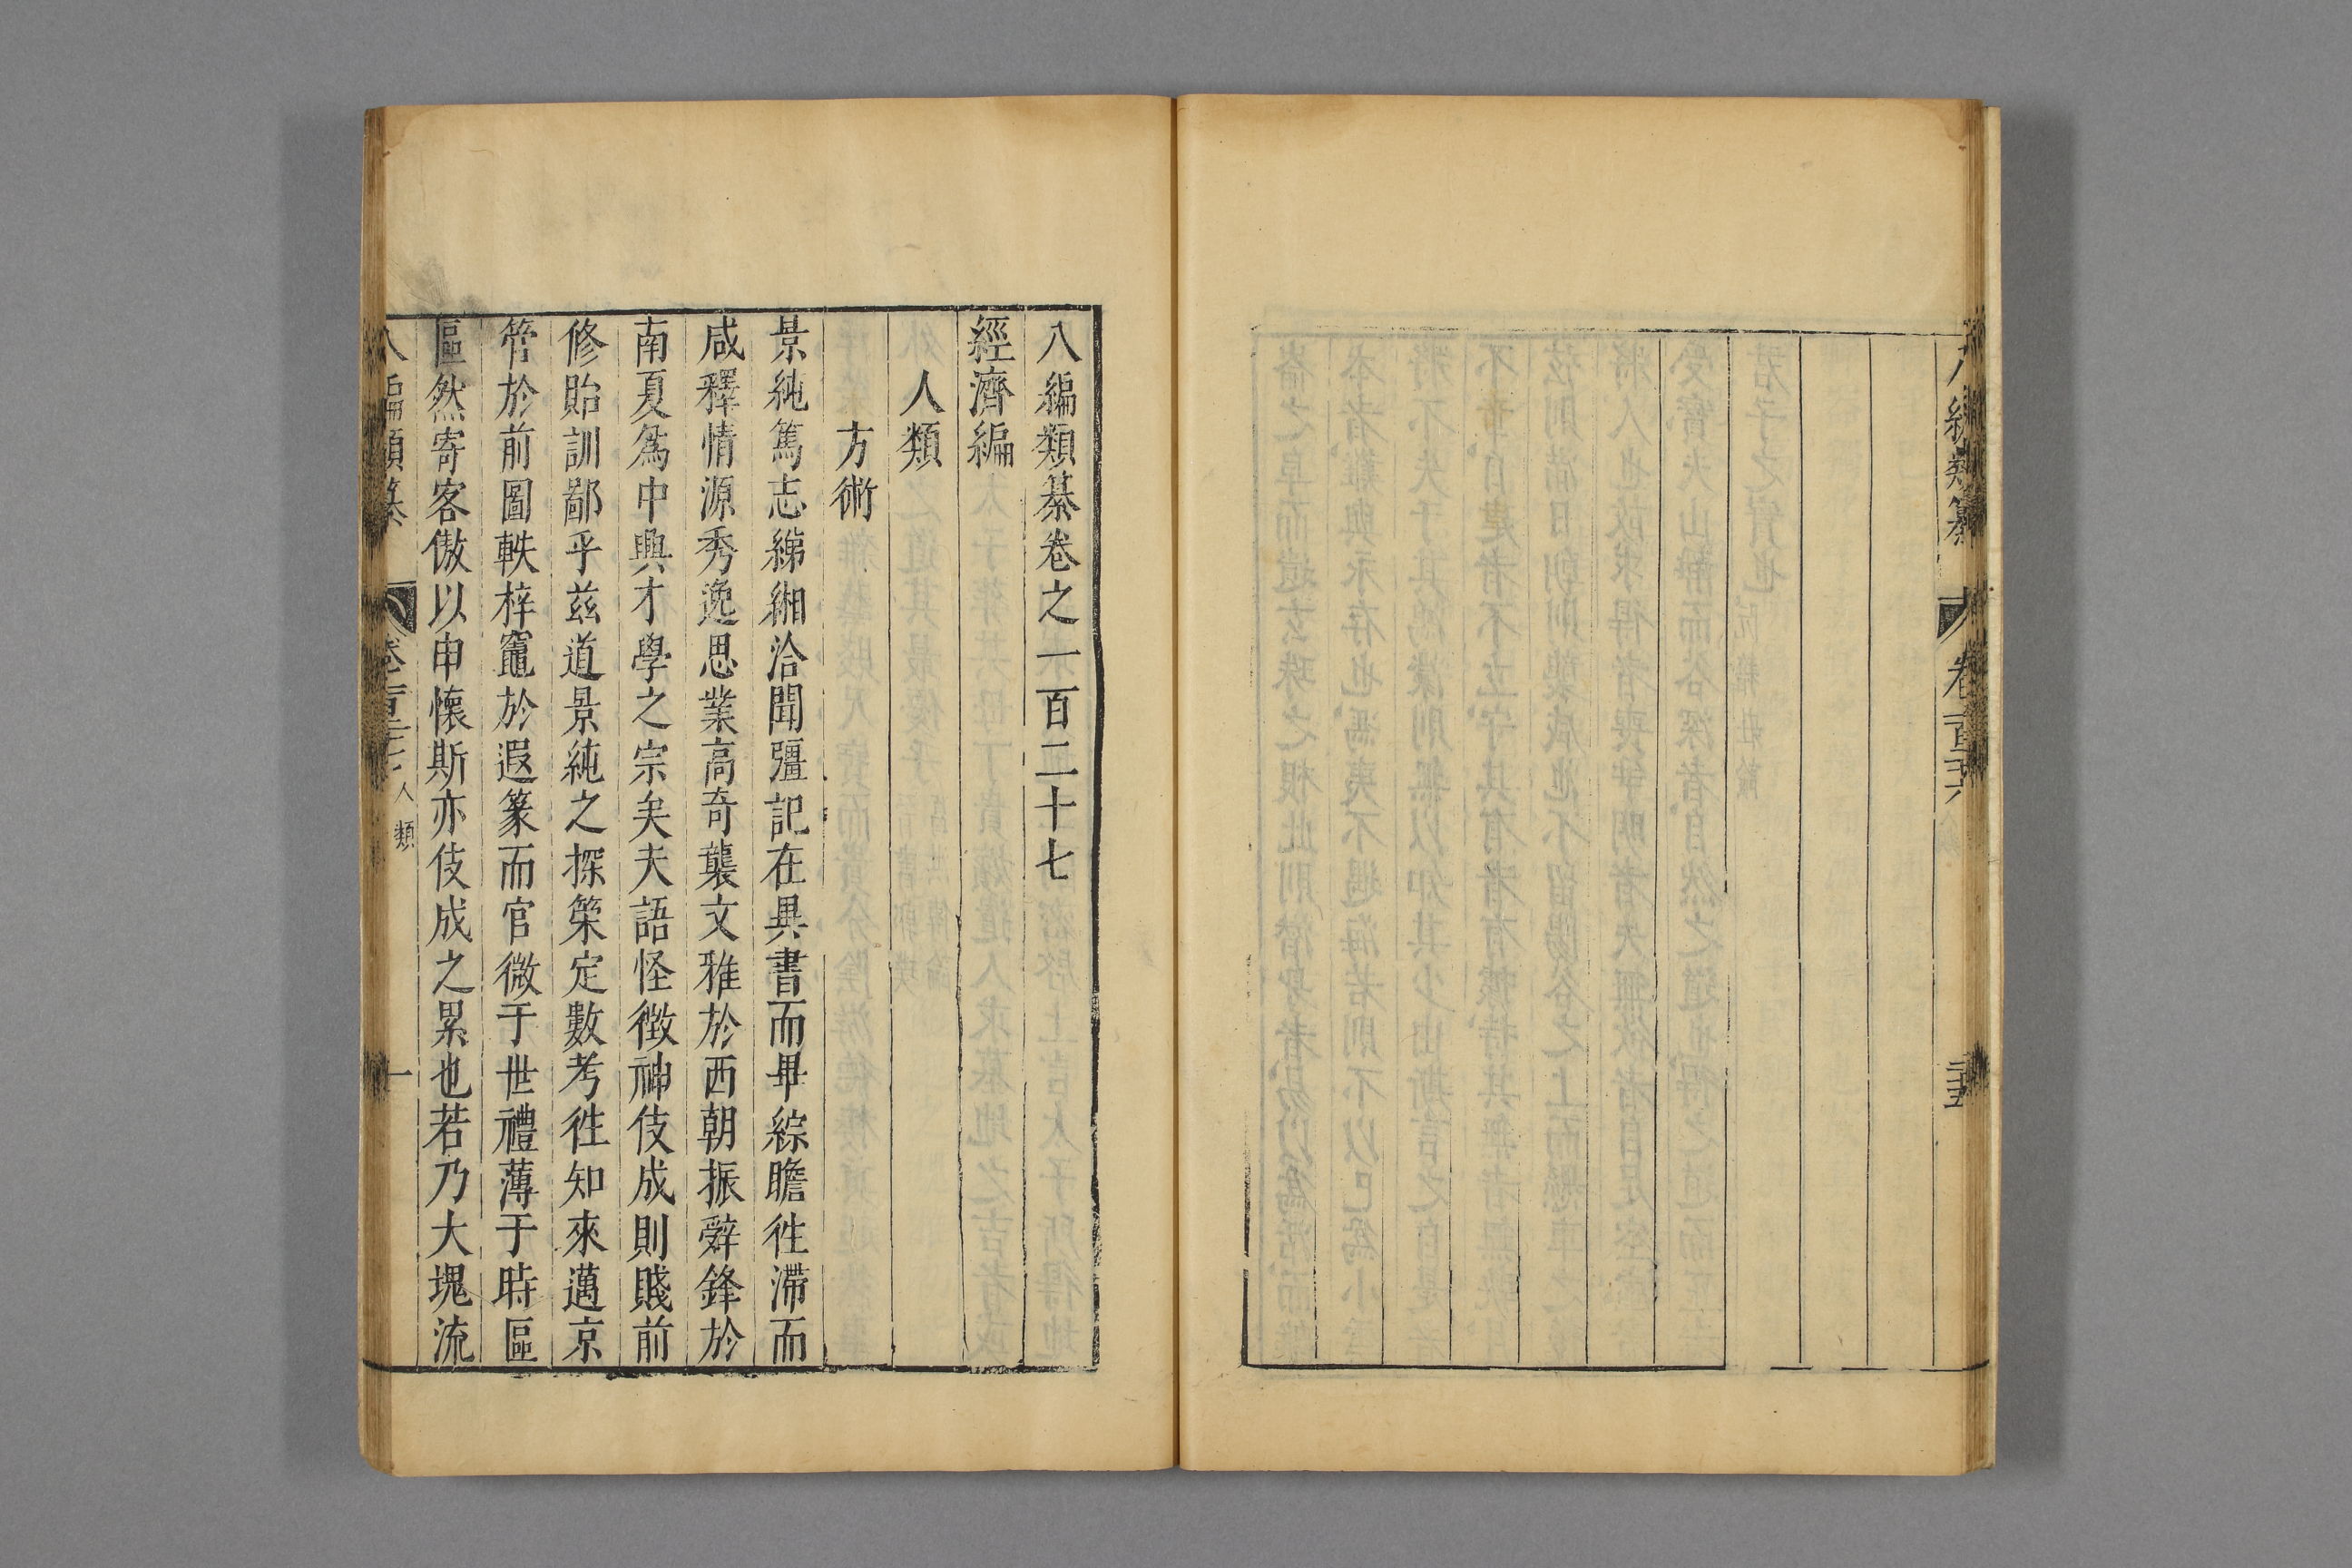 八編類纂 卷一百二十六 二十五
八編類纂卷之一百二十七
經濟編
人類
方術
景純篤志綈緗洽聞彊記在異書而畢綜瞻徃滯而
咸釋情源秀逸思業高奇襲文雅於西朝振辭鋒於
南夏爲中興才學之宗矣夫語怪徴神伎成則賤前
修貽訓鄙乎兹道景純之探策定數考徃知來邁京
管於前圖軼梓竈於遐篆而官微于世禮薄于時區
區然寄客傲以申懷斯亦伎成之累也若乃大塊流
八編類纂 卷一百二十七 人類 一